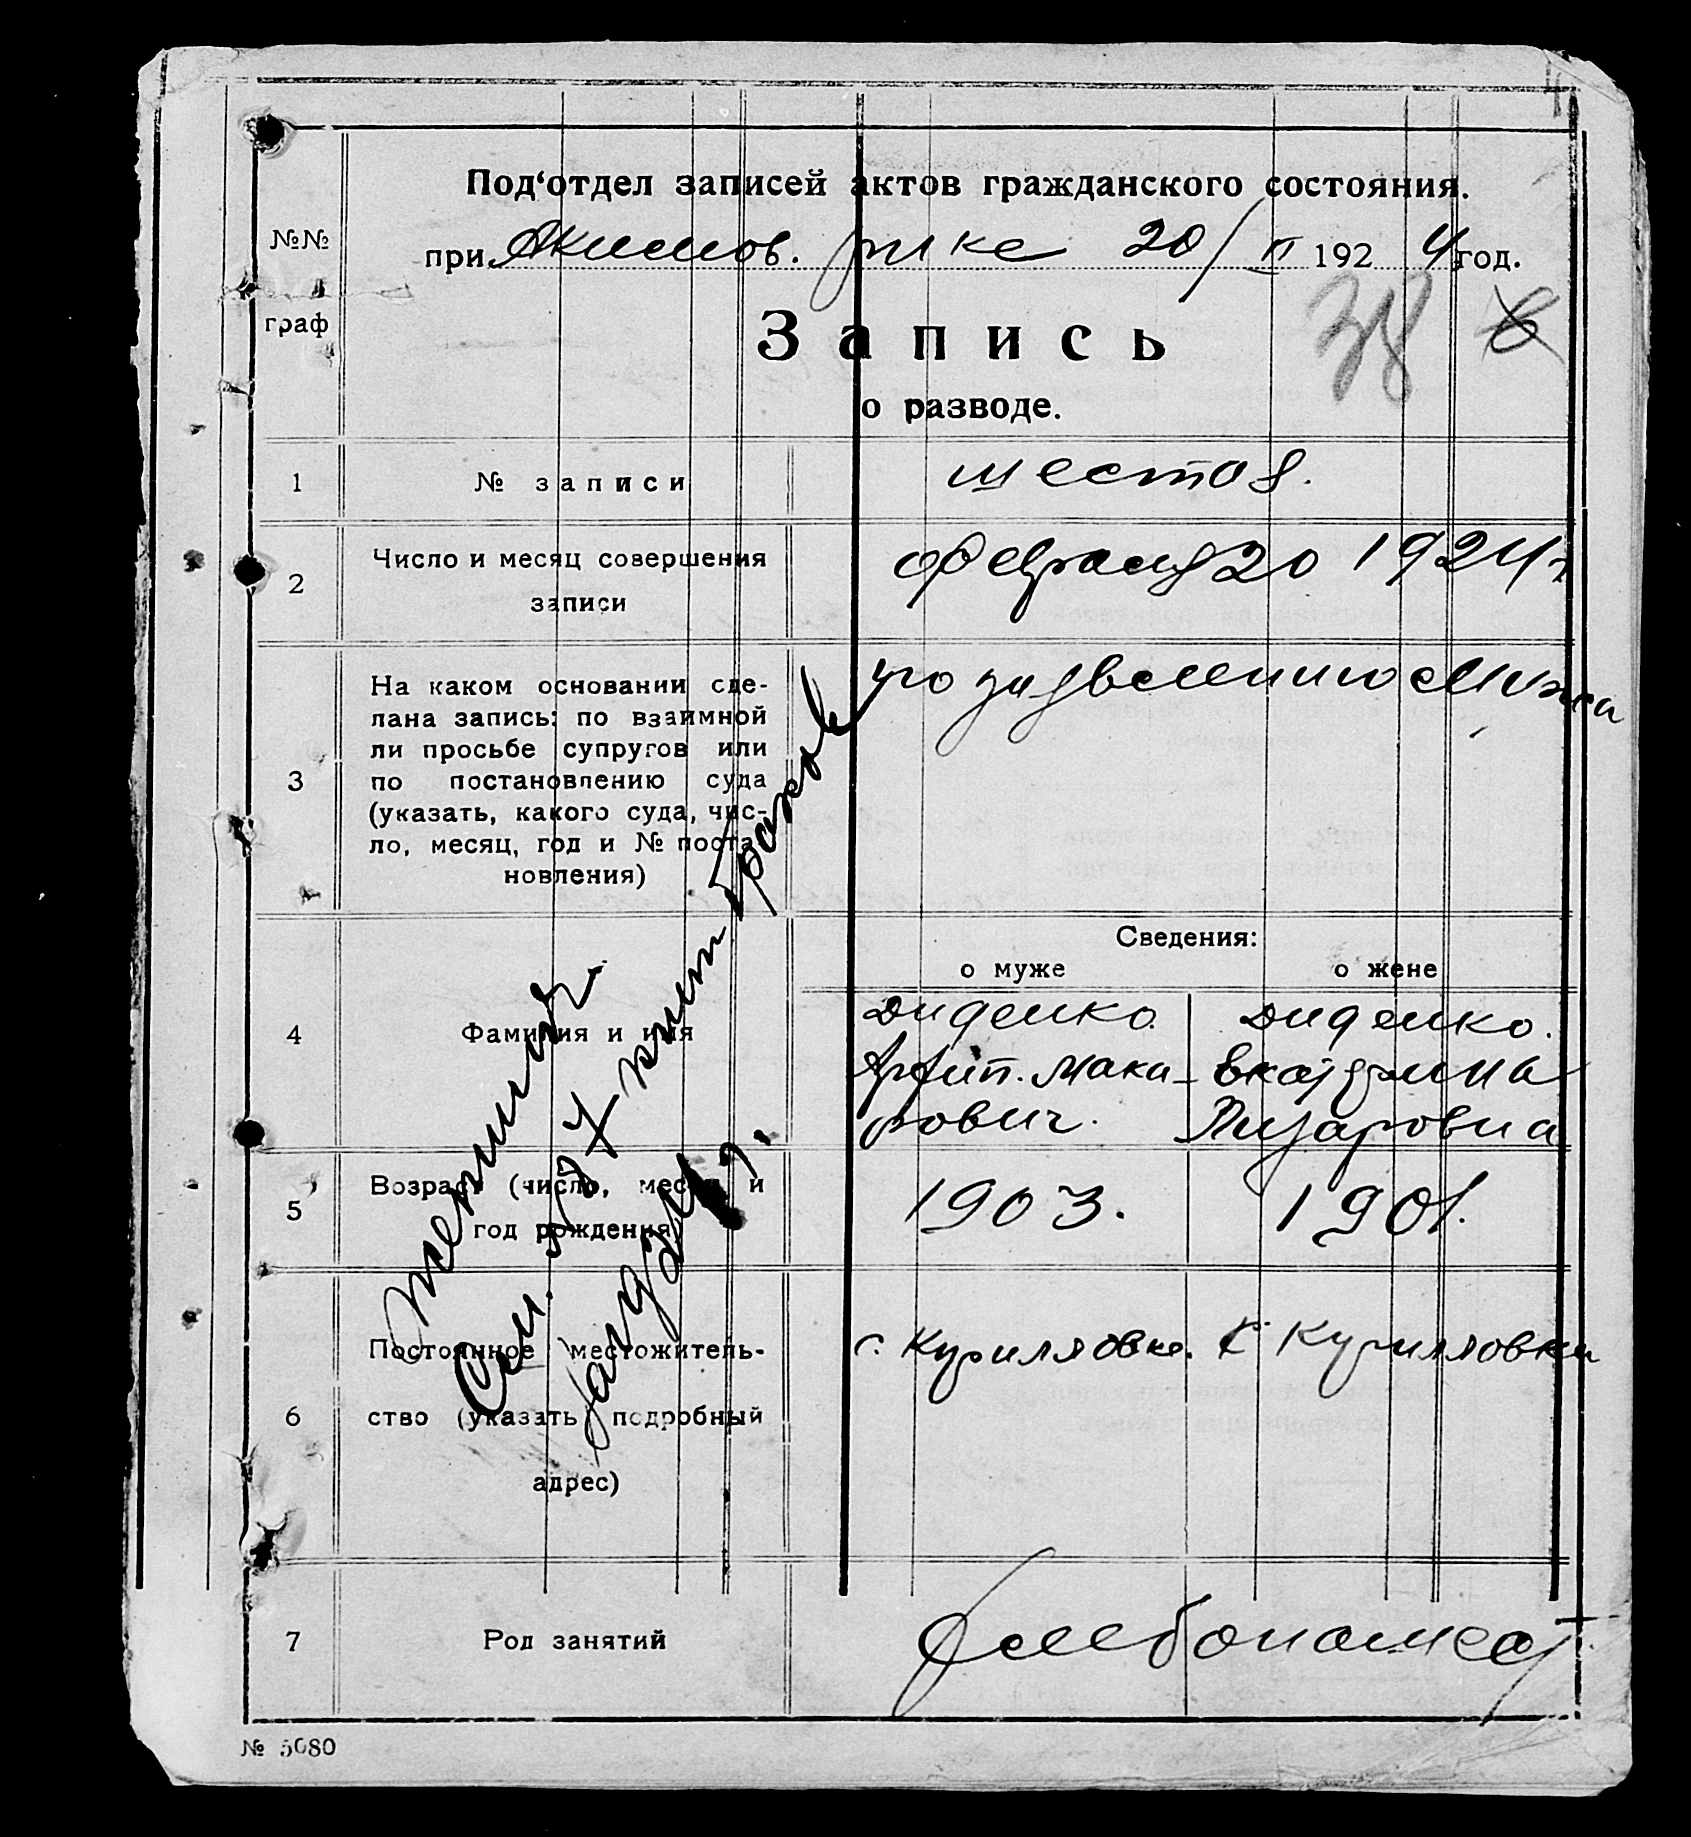 Под‘отдел записей актов гражданского состояния.
№№
граф
при Акимов. рике 20/II 1924 год.
Запись
38 6
о разводе.
1 № записи шестая.
2 Число и месяц совершения
записи
Февраля 20 1924 г
3 На каком основании сде-
лана запись: по взаимной
ли просьбе супругов или
по постановлению суда
(указать, какого суда, чис-
ло, месяц, год и № поста-
новления)
по заявлению Мужа
Сведения:
о муже о жене
4 Фамилия и имя
Диденко Диденко.
Архип. Мака- Екатерина
рович. Лазаровна
5 Возраст (число, месяц и
год рождения)
1903. 1901.
6 Постоянное местожитель-
ство (указать подробный
адрес)
с. Кирилловке. с Кирилловки
7 Род занятий Хлебопашест
№ 5080